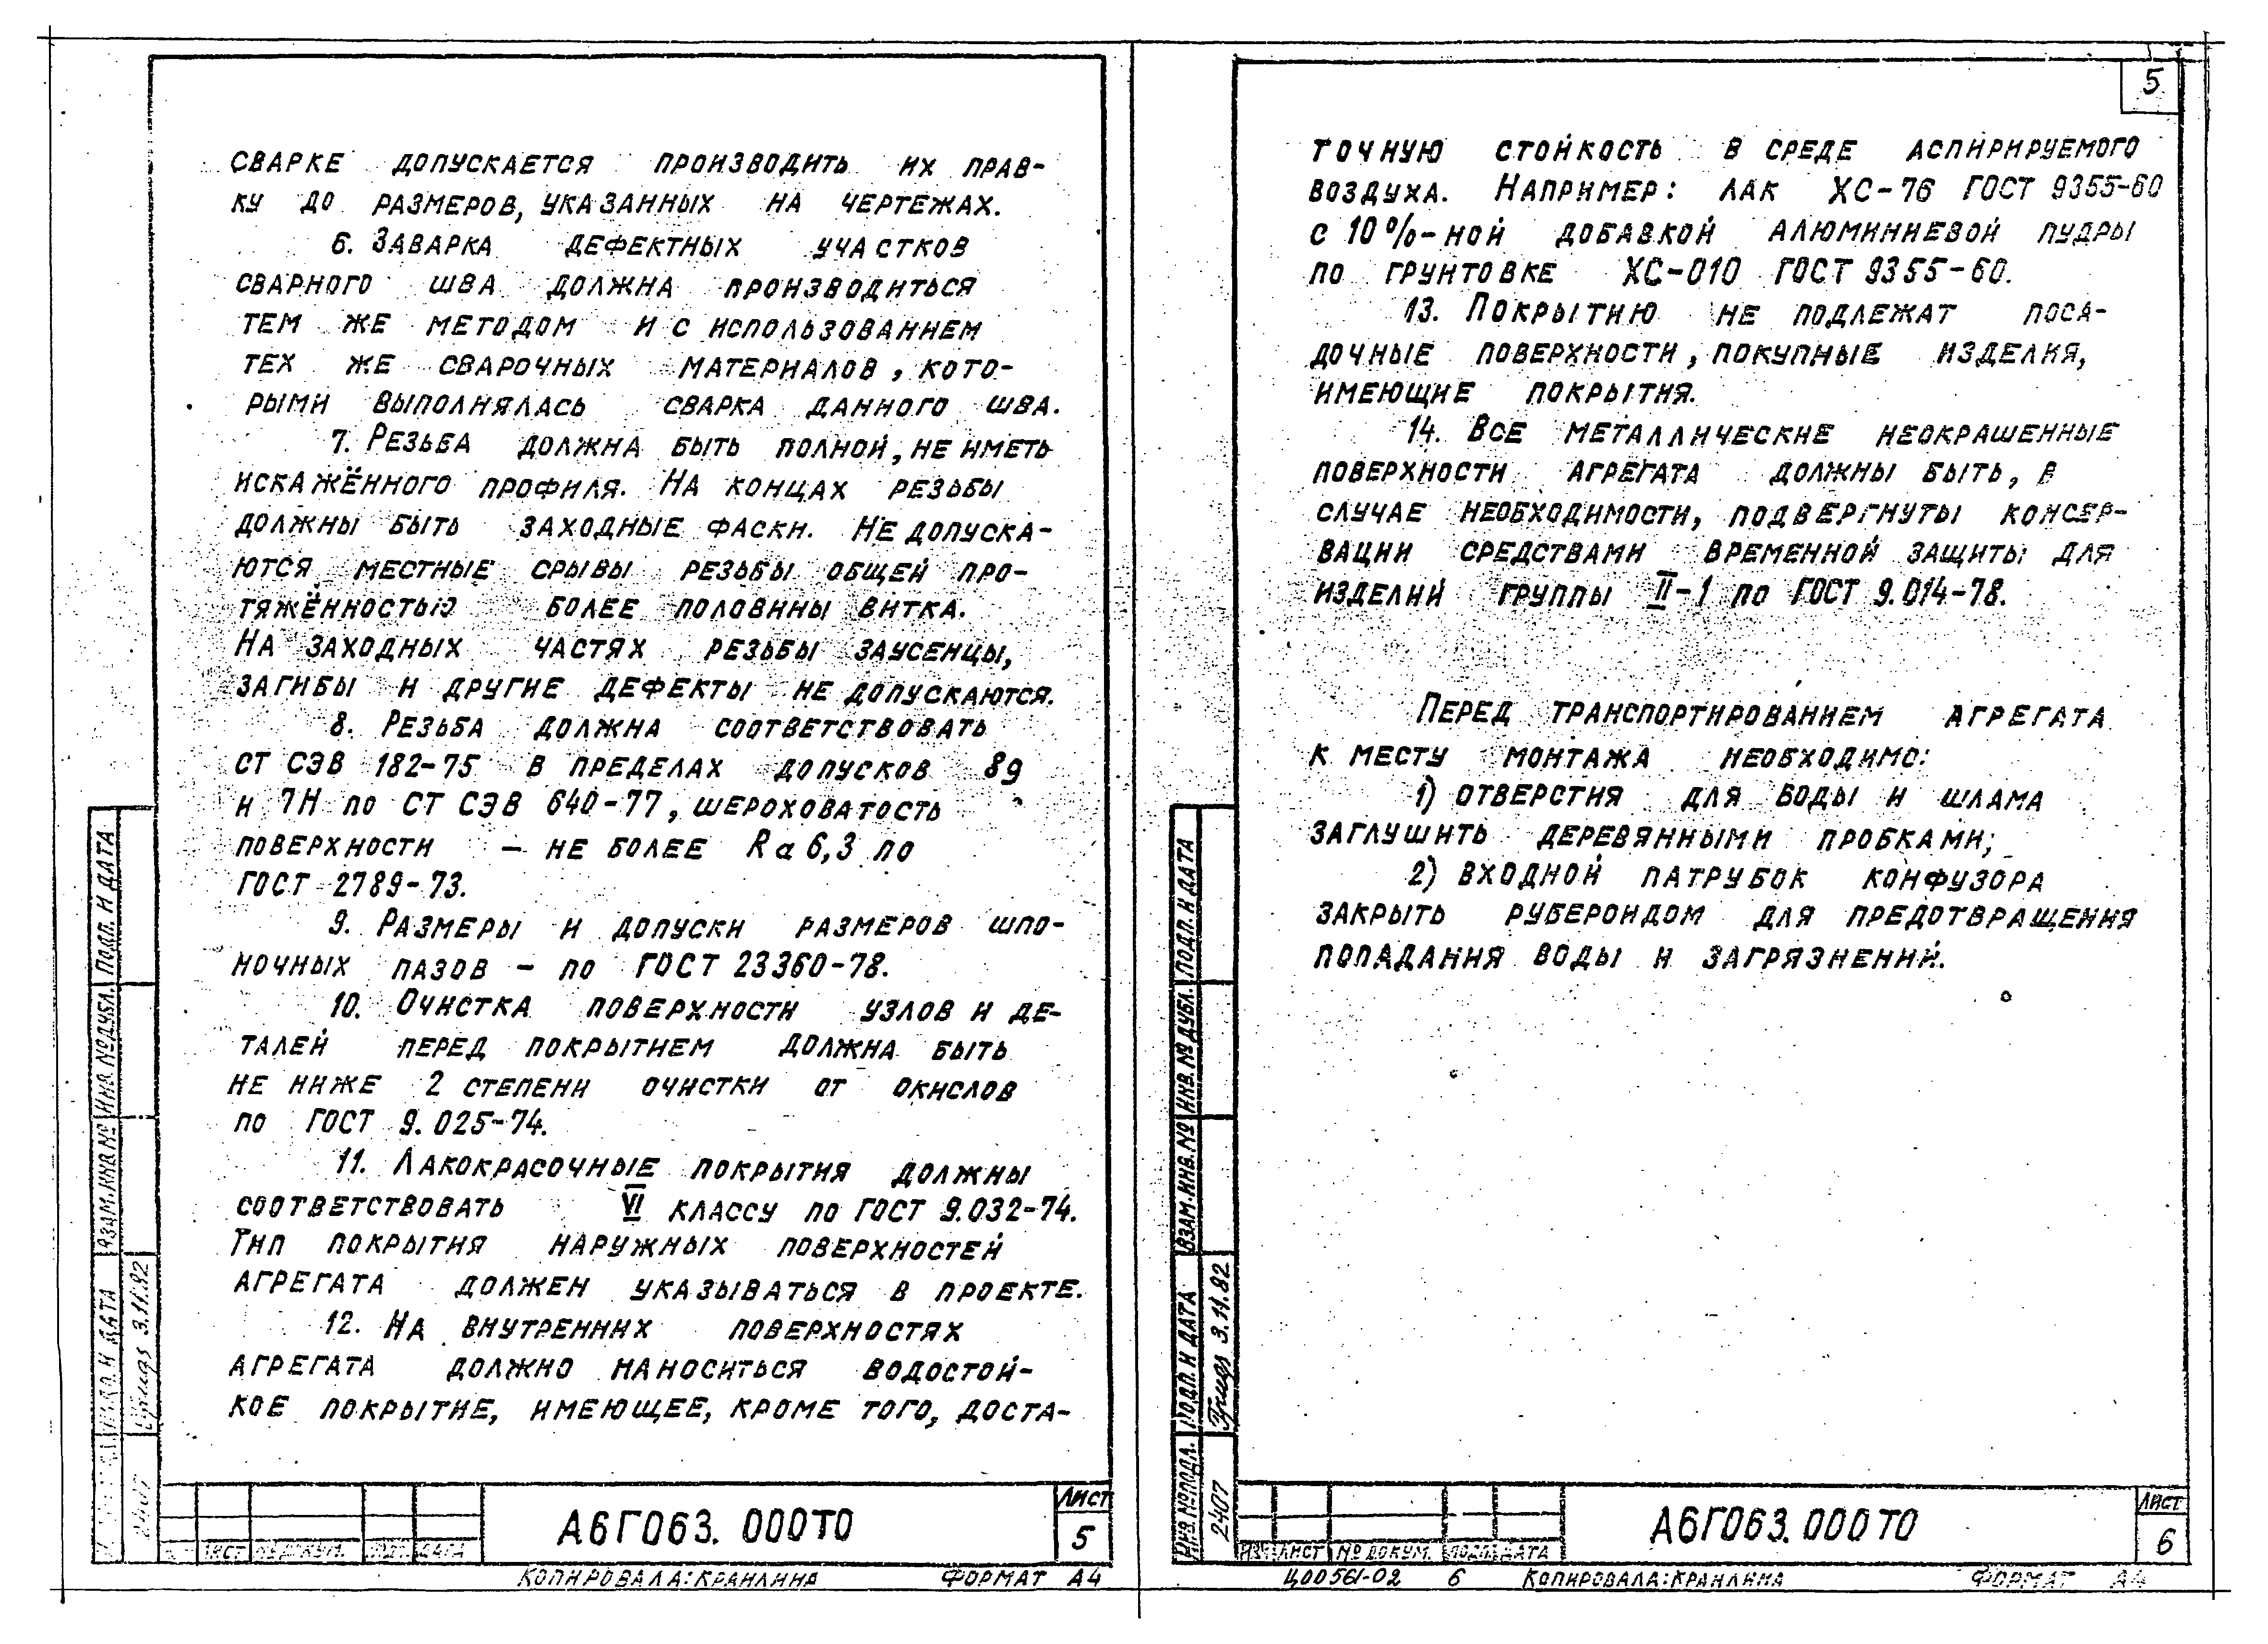 СВАРКЕ ДОПУСКАЕТСЯ ПРОИЗВОДИТЬ ИХ ПРАВ-
КУ ДО РАЗМЕРОВ, УКАЗАННЫХ НА ЧЕРТЕЖАХ.
6. ЗАВАРКА ДЕФЕКТНЫХ УЧАСТКОВ
СВАРНОГО ШВА ДОЛЖНА ПРОИЗВОДИТЬСЯ
ТЕМ ЖЕ МЕТОДОМ И С ИСПОЛЬЗОВАНИЕМ
ТЕХ ЖЕ СВАРОЧНЫХ МАТЕРИАЛОВ, КОТО-
РЫМИ ВЫПОЛНЯЛАСЬ СВАРКА ДАННОГО ШВА.
7. РЕЗЬБА ДОЛЖНА БЫТЬ ПОЛНОЙ, НЕ ИМЕТЬ
ИСКАЖЁННОГО ПРОФИЛЯ. НА КОНЦАХ РЕЗЬБЫ
ДОЛЖНЫ БЫТЬ ЗАХОДНЫЕ ФАСКИ. НЕ ДОПУСКА-
ЮТСЯ МЕСТНЫЕ СРЫВЫ РЕЗЬБЫ ОБЩЕЙ ПРО-
ТЯЖЁННОСТЬЮ БОЛЕЕ ПОЛОВИНЫ ВИТКА.
НА ЗАХОДНЫХ ЧАСТЯХ РЕЗЬБЫ ЗАУСЕНЦЫ,
ЗАГИБЫ И ДРУГИЕ ДЕФЕКТЫ НЕ ДОПУСКАЮТСЯ.
8. РЕЗЬБА ДОЛЖНА СООТВЕТСТВОВАТЬ
СТ СЭВ 182-75 В ПРЕДЕЛАХ ДОПУСКОВ 8g
И 7Н ПО СТ СЭВ 640-77, ШЕРОХОВАТОСТЬ
ПОВЕРХНОСТИ - НЕ БОЛЕЕ Ra 6,3 ПО
ГОСТ 2789-73.
9. РАЗМЕРЫ И ДОПУСКИ РАЗМЕРОВ ШПО-
НОЧНЫХ ПАЗОВ - ПО ГОСТ 23360-78.
10. ОЧИСТКА ПОВЕРХНОСТИ УЗЛОВ И ДЕ-
ТАЛЕЙ ПЕРЕД ПОКРЫТИЕМ ДОЛЖНА БЫТЬ
НЕ НИЖЕ 2 СТЕПЕНИ ОЧИСТКИ ОТ ОКИСЛОВ
ПО ГОСТ 9.025-74.
11. ЛАКОКРАСОЧНЫЕ ПОКРЫТИЯ ДОЛЖНЫ
СООТВЕТСТВОВАТЬ VI КЛАССУ ПО ГОСТ 9.032-74.
ТИП ПОКРЫТИЯ НАРУЖНЫХ ПОВЕРХНОСТЕЙ
АГРЕГАТА ДОЛЖЕН УКАЗЫВАТЬСЯ В ПРОЕКТЕ.
12. НА ВНУТРЕННИХ ПОВЕРХНОСТЯХ
АГРЕГАТА ДОЛЖНО НАНОСИТЬСЯ ВОДОСТОЙ-
КОЕ ПОКРЫТИЕ, ИМЕЮЩЕЕ, КРОМЕ ТОГО, ДОСТА-
ПОДП. И ДАТА
ИНВ.№ ДУБЛ.
ВЗАМ.ИНВ.№
И ДАТА
3.11.82
2407
ЛИСТ № ДОКУМ. ДАТА
А6Г063.000ТО
ЛИСТ
5
КОПИРОВАЛА: КРАНЛИНА ФОРМАТ А4
5
ТОЧНУЮ СТОЙКОСТЬ В СРЕДЕ АСПИРИРУЕМОГО
ВОЗДУХА. НАПРИМЕР: ЛАК ХС-76 ГОСТ 9355-60
С 10%-НОЙ ДОБАВКОЙ АЛЮМИНИЕВОЙ ПУДРЫ
ПО ГРУНТОВКЕ ХС-010 ГОСТ 9355-60.
13. ПОКРЫТИЮ НЕ ПОДЛЕЖАТ ПОСА-
ДОЧНЫЕ ПОВЕРХНОСТИ, ПОКУПНЫЕ ИЗДЕЛИЯ,
ИМЕЮЩИЕ ПОКРЫТИЯ.
14. ВСЕ МЕТАЛЛИЧЕСКИЕ НЕОКРАШЕННЫЕ
ПОВЕРХНОСТИ АГРЕГАТА ДОЛЖНЫ БЫТЬ, В
СЛУЧАЕ НЕОБХОДИМОСТИ, ПОДВЕРГНУТЫ КОНСЕР-
ВАЦИИ СРЕДСТВАМИ ВРЕМЕННОЙ ЗАЩИТЫ ДЛЯ
ИЗДЕЛИЙ ГРУППЫ II-1 ПО ГОСТ 9.014-78.
ПЕРЕД ТРАНСПОРТИРОВАНИЕМ АГРЕГАТА
К МЕСТУ МОНТАЖА НЕОБХОДИМО:
1) ОТВЕРСТИЯ ДЛЯ ВОДЫ И ШЛАМА
ЗАГЛУШИТЬ ДЕРЕВЯННЫМИ ПРОБКАМИ;
2) ВХОДНОЙ ПАТРУБОК КОНФУЗОРА
ЗАКРЫТЬ РУБЕРОИДОМ ДЛЯ ПРЕДОТВРАЩЕНИЯ
ПОПАДАНИЯ ВОДЫ И ЗАГРЯЗНЕНИЙ.
ПОДП. И ДАТА
ИНВ.№ ДУБЛ.
ВЗАМ.ИНВ.№
ПОДП. И ДАТА
3.11.82
ИНВ.№ ПОДЛ.
2407
ИЗМ ЛИСТ № ДОКУМ. ПОДП. ДАТА
А6Г063.000ТО
ЛИСТ
6
Ц00561-02 6 КОПИРОВАЛА: КРАНЛИНА ФОРМАТ А4